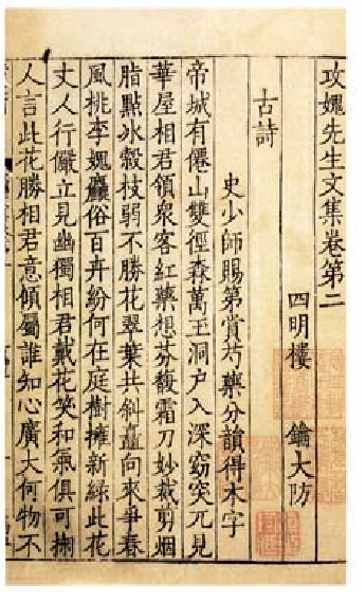 攻媿先生文集卷第二
四明樓　鑰大防
古詩
史少師賜第賞芍藥分韻得木字
帝城有僊山雙徑森萬玉洞户入深窈突兀見
華屋相君領衆客紅藥想芬馥霜刀妙裁剪烟
脂點冰縠枝弱不勝花翠葉共斜矗向來爭春
風桃李媿麤俗百卉紛何在庭樹擁新緑此花
丈人行儼立見幽獨相君戴花笑和氣俱可掬
人言此花勝相君意傾屬誰知心廣大何物不